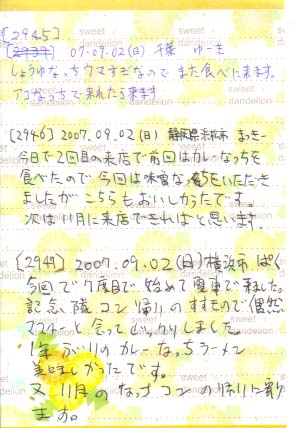 [2945]
[2939] 07.09.02(日) 千葉 ゆーき
しょうゆなっちウマすぎなので また食べに来ます。
アゴなっちで来れたら来ます
[2946] 2007.09.02(日) 静岡県浜松市 まっきー
今日で2回目の来店で前回はカレーなっちを
食べたので今回は味噌なっちをいただき
ましたがこちらもおいしかったです。
次は11月に来店できればと思います。
[2947] 2007.09.02(日)横浜市 ぱく
今回で7度目で始めて電車で来ました。
記念隊コン帰りのすすもので(偶然
マスターと会ってビックリしました。
1年ぶりのカレーなっちラーメン
美味しかったです。
又 11月のなっちコンの帰りに寄り
ます。
sweet
dandelion
sweet
dandelion
sweet
dandelion
sweet
dandelion